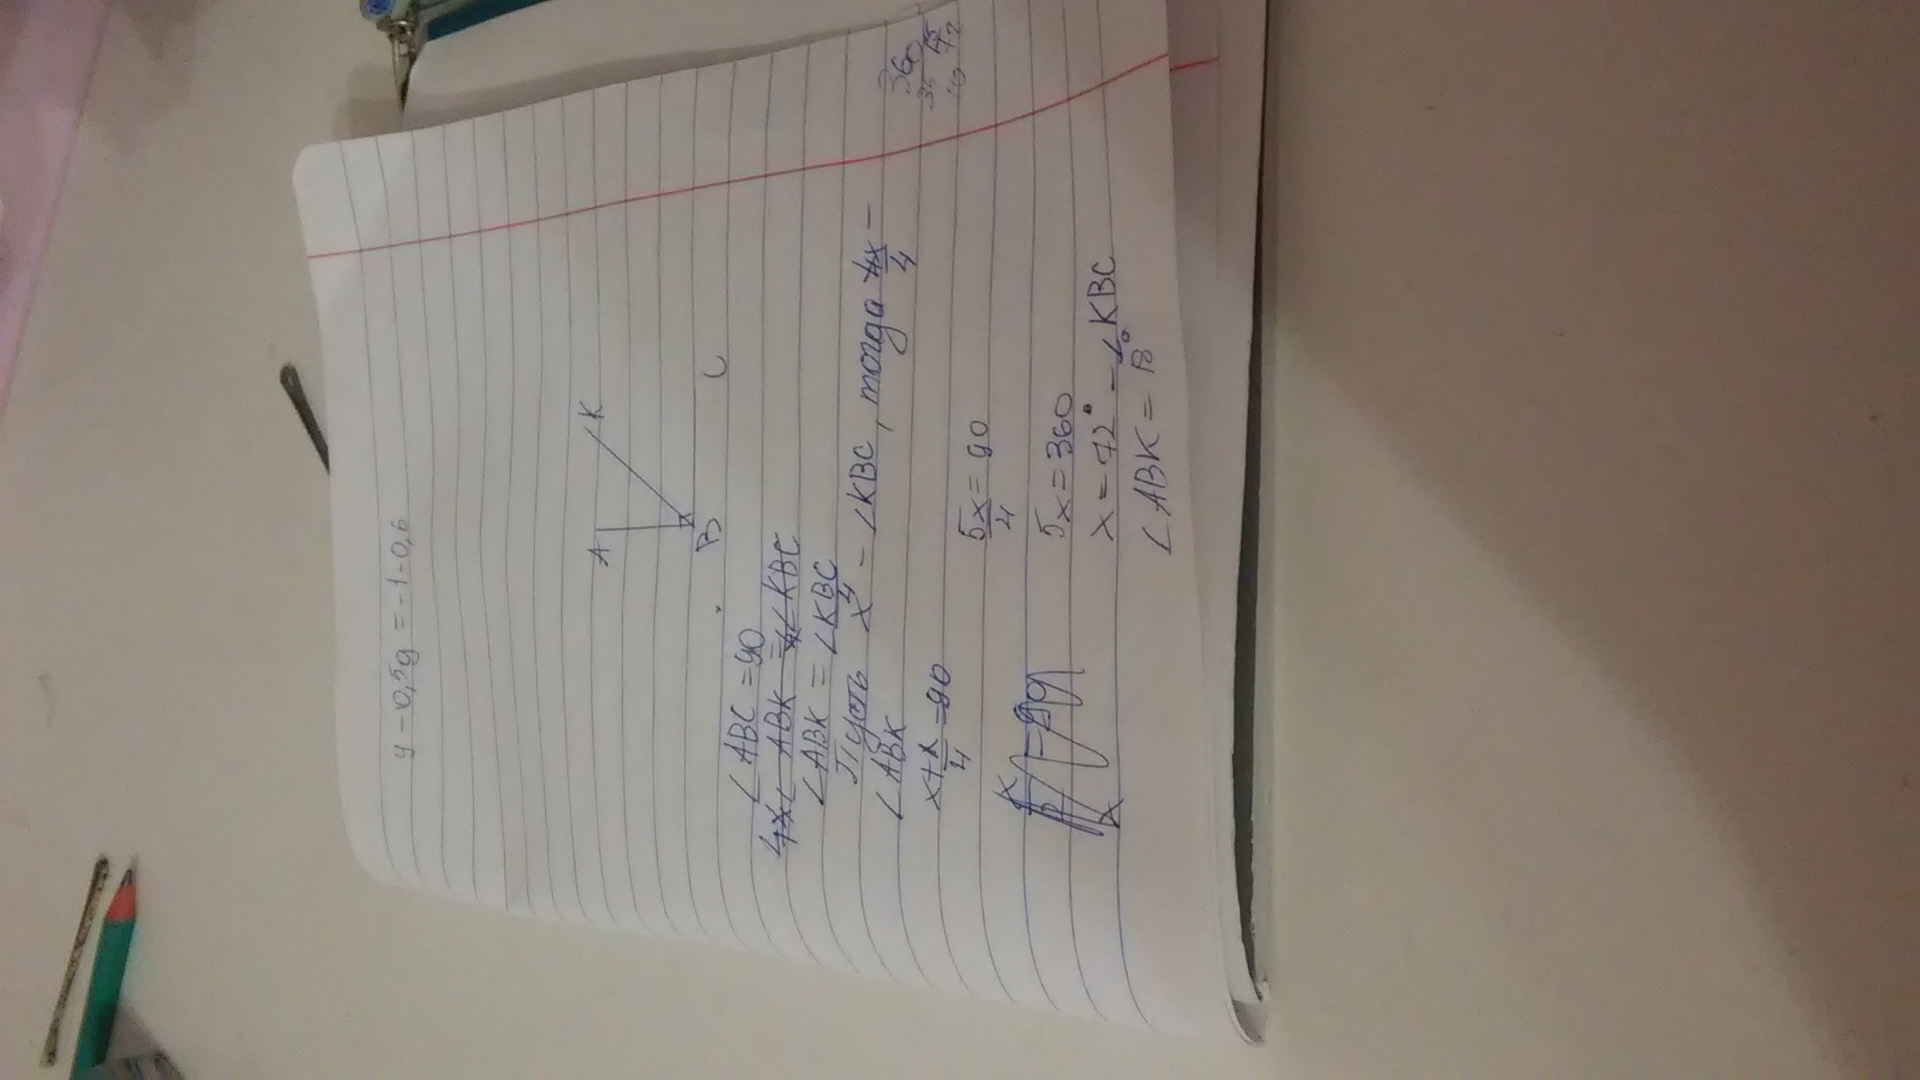 y - 0,5y = -1-0,6
A
K
B
C
∠ABC = 90
4x∠ABK = 4∠KBC
∠ABK = ∠KBC/4
Пусть x - ∠KBC, тогда 4x/4 -
∠ABK
x + x/4 = 90
5x/4 = 90
5x = 360
x = 72° - ∠KBC
∠ABK = 18°
360
35
10
5
72